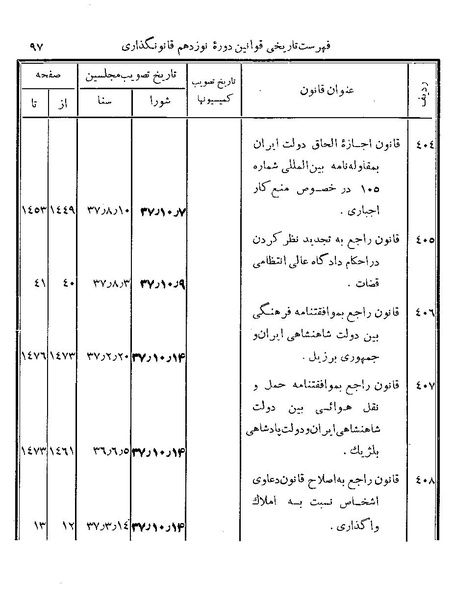 فهرست تاریخی قوانین دورهٔ نوزدهم قانونگذاری ۹۷
ردیف عنوان قانون تاریخ تصویب کمیسیونها تاریخ تصویب مجلسین صفحه
شورا سنا از تا
۴۰۴ قانون اجازهٔ الحاق دولت ایران
بمقاوله‌نامه بین‌المللی شماره
۱۰۵ در خصوص منع کار
اجباری . ۳۷٫۱۰٫۷ ۳۷٫۸٫۱۰ ۱۴۴۹ ۱۴۵۳
۴۰۵ قانون راجع به تجدید نظر کردن
در احکام دادگاه عالی انتظامی
قضات . ۳۷٫۱۰٫۹ ۳۷٫۸٫۳ ۴۰ ۴۱
۴۰۶ قانون راجع بموافقتنامه فرهنگی
بین دولت شاهنشاهی ایران و
جمهوری برزیل . ۳۷٫۱۰٫۱۴ ۳۷٫۲٫۲۰ ۱۴۷۳ ۱۴۷۶
۴۰۷ قانون راجع بموافقتنامه حمل و
نقل هوائی بین دولت
شاهنشاهی ایران و دولت پادشاهی
بلژیك . ۳۷٫۱۰٫۱۴ ۳۶٫۶٫۵ ۱۴۶۱ ۱۴۷۳
۴۰۸ قانون راجع به اصلاح قانون دعاوی
اشخاص نسبت به املاك
واگذاری . ۳۷٫۱۰٫۱۴ ۳۷٫۳٫۱۴ ۱۲ ۱۳